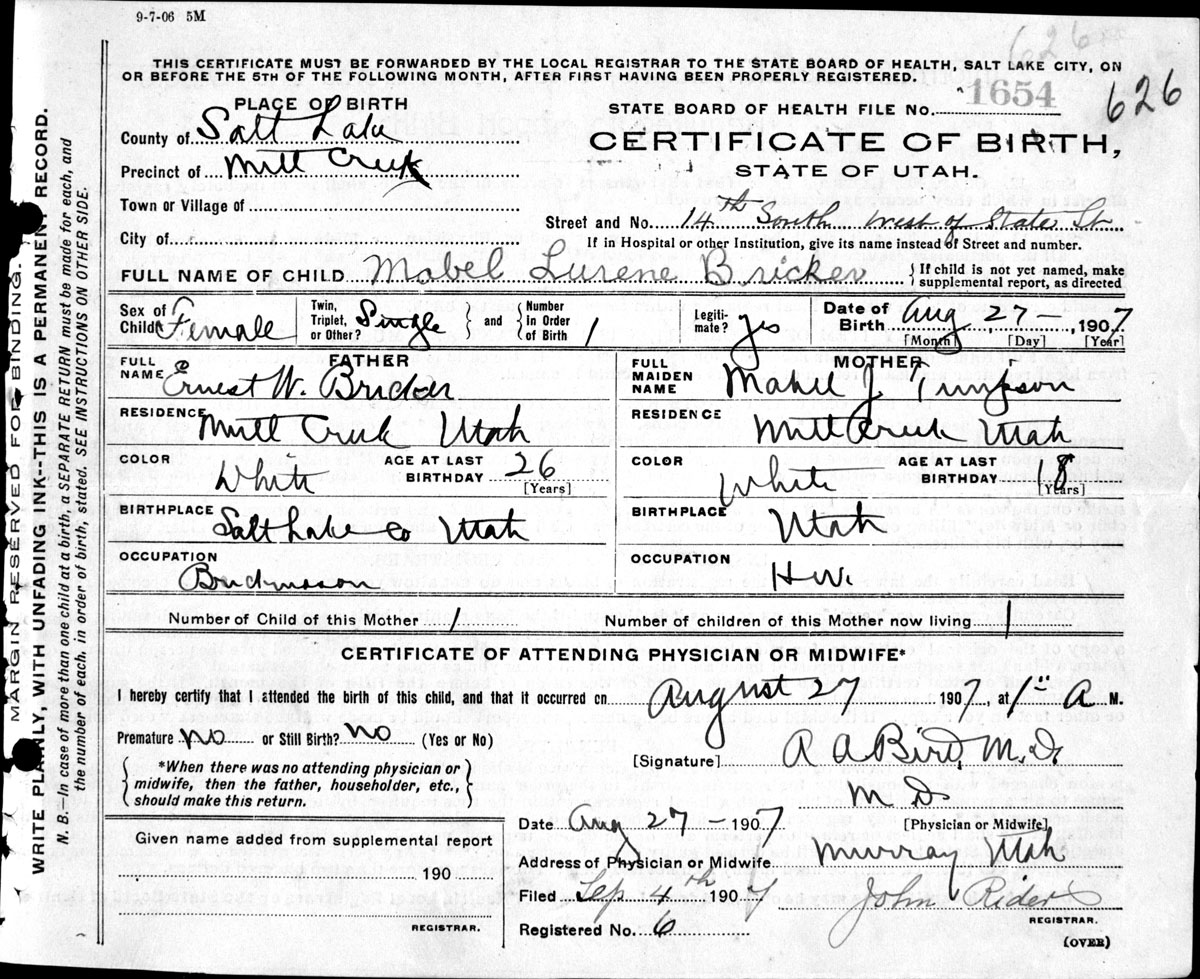 9-7-06 5M
THIS CERTIFICATE MUST BE FORWARDED BY THE LOCAL REGISTRAR TO THE STATE BOARD OF HEALTH, SALT LAKE CITY, ON
OR BEFORE THE 5TH OF THE FOLLOWING MONTH, AFTER FIRST HAVING BEEN PROPERLY REGISTERED.
626
MARGIN RESERVED FOR BINDING.
WRITE PLAINLY, WITH UNFADING INK--THIS IS A PERMANENT RECORD.
N. B.—In case of more than one child at a birth, a SEPARATE RETURN must be made for each, and
the number of each, in order of birth, stated. SEE INSTRUCTIONS ON OTHER SIDE.
PLACE OF BIRTH
County of Salt Lake
Precinct of Mill Creek
Town or Village of
City of
STATE BOARD OF HEALTH FILE No. 1654
626
CERTIFICATE OF BIRTH,
STATE OF UTAH.
Street and No. 14th South West of State St
If in Hospital or other Institution, give its name instead of Street and number.
FULL NAME OF CHILD Mabel Lurene Bricker
{If child is not yet named, make
supplemental report, as directed
Sex of Child Female
Twin, Triplet, or Other? Single } and { Number in Order of Birth 1
Legitimate? yes
Date of Birth Aug 27 — , 1907
[Month] [Day] [Year]
FATHER
FULL NAME Ernest W. Bricker
RESIDENCE Mill Creek Utah
COLOR White
AGE AT LAST BIRTHDAY 26
[Years]
BIRTHPLACE Salt Lake Co Utah
OCCUPATION
MOTHER
FULL MAIDEN NAME Mabel J Timpson
RESIDENCE Mill Creek Utah
COLOR White
AGE AT LAST BIRTHDAY 18
[Years]
BIRTHPLACE Utah
OCCUPATION H.W.
Number of Child of this Mother 1
Number of children of this Mother now living 1
CERTIFICATE OF ATTENDING PHYSICIAN OR MIDWIFE*
I hereby certify that I attended the birth of this child, and that it occurred on August 27 1907, at 1 A M.
Premature no or Still Birth? no (Yes or No)
{*When there was no attending physician or
midwife, then the father, householder, etc.,
should make this return.}
[Signature] A A Bird, M.D.
M D.
[Physician or Midwife]
Date Aug 27 - 1907
Address of Physician or Midwife Murray Utah
Filed Sep 4th 1907 John Rider
REGISTRAR.
Registered No. 6
(OVER)
Given name added from supplemental report
190
REGISTRAR.